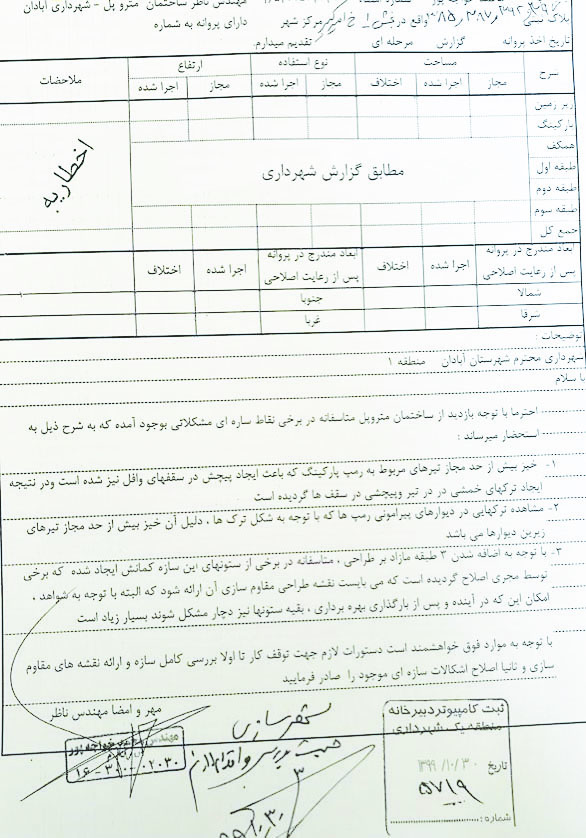 مهندس ناظر ساختمان مترو پل - شهرداری آبادان
دارای پروانه به شماره
واقع در مرکز شهر
تاریخ اخذ پروانه گزارش مرحله ای تقدیم میدارم.
شرح مساحت نوع استفاده ارتفاع ملاحضات
مجاز اجرا شده اختلاف مجاز اجرا شده مجاز اجرا شده
زیر زمین
پارکینگ
همکف
طبقه اول
طبقه دوم
طبقه سوم
جمع کل
مطابق گزارش شهرداری
اخطاریه
ابعاد مندرج در پروانه پس از رعایت اصلاحی اجرا شده اختلاف ابعاد مندرج در پروانه پس از رعایت اصلاحی اجرا شده اختلاف
شمالا جنوبا
شرقا غربا
توضیحات :
شهرداری محترم شهرستان آبادان منطقه ۱
با سلام
احترما با توجه بازدید از ساختمان متروپل متاسفانه در برخی نقاط سازه ای مشکلاتی بوجود آمده که به شرح ذیل به
استحضار میرساند :
۱- خیز بیش از حد مجاز تیرهای مربوط به رمپ پارکینگ که باعث ایجاد پیچش در سقفهای وافل نیز شده است ودر نتیجه
ایجاد ترکهای خمشی در در تیر وپیچشی در سقف ها گردیده است
۲- مشاهده ترکهایی در دیوارهای پیرامونی رمپ ها که با توجه به شکل ترک ها ، دلیل آن خیز بیش از حد مجاز تیرهای
زیرین دیوارها می باشد
۳- با توجه به اضافه شدن ۳ طبقه مازاد بر طراحی ، متاسفانه در برخی از ستونهای این سازه کمانش ایجاد شده که برخی
توسط مجری اصلاح گردیده است که می بایست نقشه طراحی مقاوم سازی آن ارائه شود که البته با توجه به شواهد ،
امکان این که در آینده و پس از بارگذاری بهره برداری ، بقیه ستونها نیز دچار مشکل شوند بسیار زیاد است
با توجه به موارد فوق خواهشمند است دستورات لازم جهت توقف کار تا اولا بررسی کامل سازه و ارائه نقشه های مقاوم
سازی و ثانیا اصلاح اشکالات سازه ای موجود را صادر فرمایید
مهر و امضا مهندس ناظر
ثبت کامپیوتر دبیرخانه
منطقه یک شهرداری
تاریخ ۱۳۹۹/۱۰/۳۰
۵۷۱۹
شماره :
مهندس
۱۶-۳۱۰-۰۲۰۳۰
شهرسازی
جهت بررسی و اقدام لازم